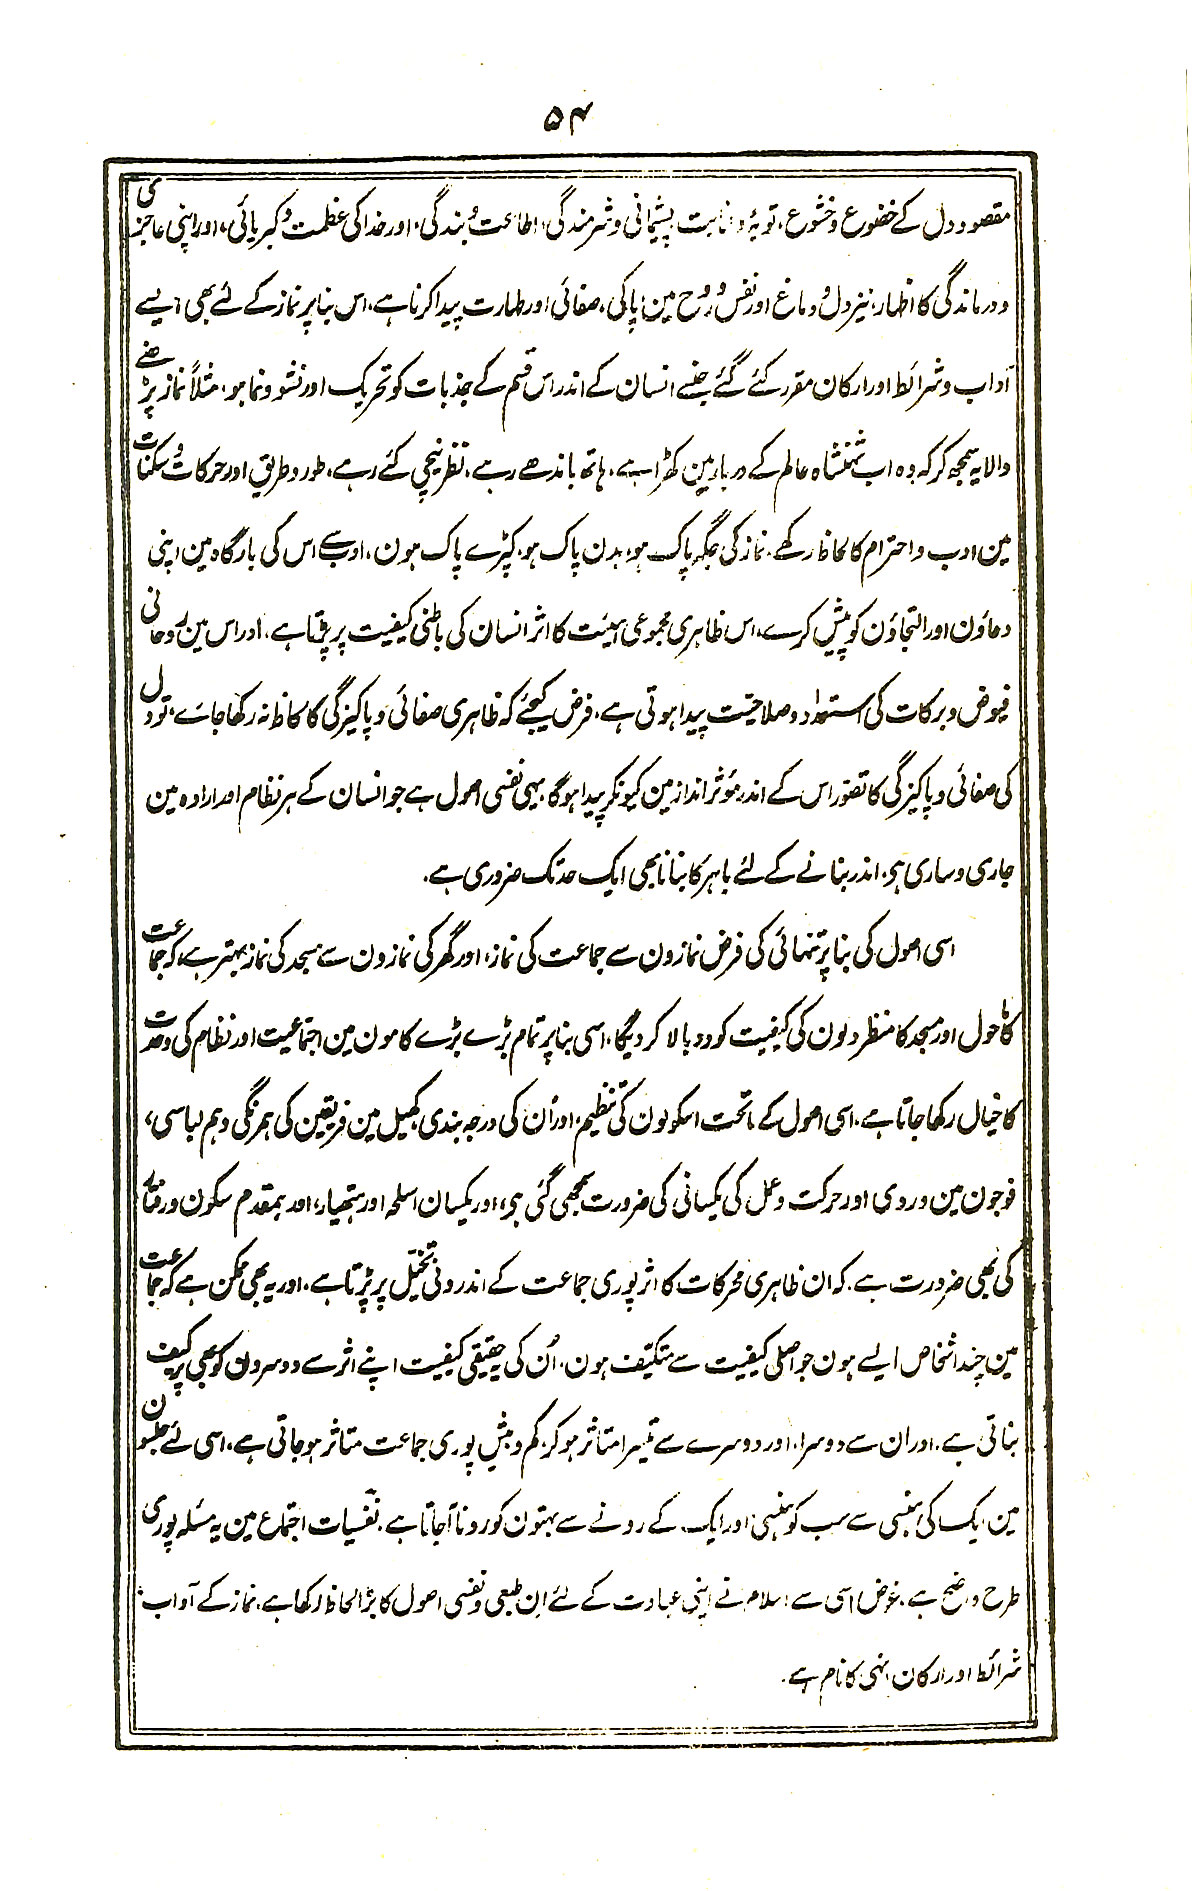 ۵۴
مقصود دل کے خضوع و خشوع، توبۂ و انابت پشیمانی و شرمندگی، اطاعت و بندگی، اور خدا کی عظمت و کبریائی، اور اپنی عاجزی
و درماندگی کا اظہار، نیز دل و دماغ اور نفس و روح مین پاکی، صفائی اور طہارت پیدا کرنا ہے، اس بنا پر نماز کے لئے بھی ایسے
آداب و شرائط اور ارکان مقرر کئے گئے جنسے انسان کے اندر اس قسم کے جذبات کو تحریک اور نشو و نما ہو، مثلاً نماز پڑھنے
والا یہ سمجھ کر کہ وہ اب شہنشاہ عالم کے دربار مین کھڑا ہے، ہاتھ باندھے رہے، نظر نیچی کئے رہے، طور و طریق اور حرکات و سکنات
مین ادب و احترام کا لحاظ رکھے، نماز کی جگہ پاک ہو، بدن پاک ہو، کپڑے پاک ہون، ادب سے اس کی بارگاہ مین اپنی
دعاؤن اور التجاؤن کو پیش کرے، اس ظاہری مجموعی ہیئت کا اثر انسان کی باطنی کیفیت پر پڑتا ہے، اور اس مین روحانی
فیوض و برکات کی استعداد و صلاحیت پیدا ہوتی ہے، فرض کیجئے کہ ظاہری صفائی و پاکیزگی کا لحاظ نہ رکھا جائے، تو دل
کی صفائی و پاکیزگی کا تصور اس کے اندر مؤثر انداز مین کیونکر پیدا ہوگا، یہی نفسی اصول ہے جو انسان کے ہر نظام اور ارادہ مین
جاری و ساری ہو، اندر بنانے کے لئے باہر کا بنانا بھی ایک حد تک ضروری ہے،
اسی اصول کی بنا پر تنہائی کی فرض نمازون سے جماعت کی نماز، اور گھر کی نمازون سے مسجد کی نماز بہتر ہے، کہ جماعت
کا ماحول اور مسجد کا منظر دلون کی کیفیت کو دوبالا کر دیگا، اسی بنا پر تمام بڑے بڑے کامون مین اجتماعیت اور نظام کی وحدت
کا خیال رکھا جاتا ہے، اسی اصول کے ماتحت اسکولون کی تنظیم، اور اُن کی درجہ بندی، کھیل مین فریقین کی ہمرنگی و ہم لباسی،
فوجون مین وردی اور حرکت و عمل کی یکسانی کی ضرورت سمجھی گئی ہو، اور یکسان اسلحہ اور ہتھیار، اور ہمقدم سکون و رفتار
کی بھی ضرورت ہے، کہ ان ظاہری محرکات کا اثر پوری جماعت کے اندرونی تخیّل پر پڑتا ہے، اور یہ بھی ممکن ہے کہ جماعت
مین چند اشخاص ایسے ہون جو اصلی کیفیت سے متکیّف ہون، اُن کی حقیقی کیفیت اپنے اثر سے دوسرون کو بھی پُرکیف
بناتی ہے، اور ان سے دوسرا، اور دوسرے سے تیسرا متاثر ہو کر کم و بیش پوری جماعت متاثر ہو جاتی ہے، اسی لئے جلسون
مین ایک کی ہنسی سے سب کو ہنسی اور ایک کے رونے سے بہتون کو رونا آجاتا ہے، نفسیات اجتماع مین یہ مسئلہ پوری
طرح واضح ہے، غرض اسی سے اسلام نے اپنی عبادت کے لئے ان طبعی و نفسی اصول کا بڑا لحاظ رکھا ہے، نماز کے آداب،
شرائط اور ارکان انہی کا نام ہے،